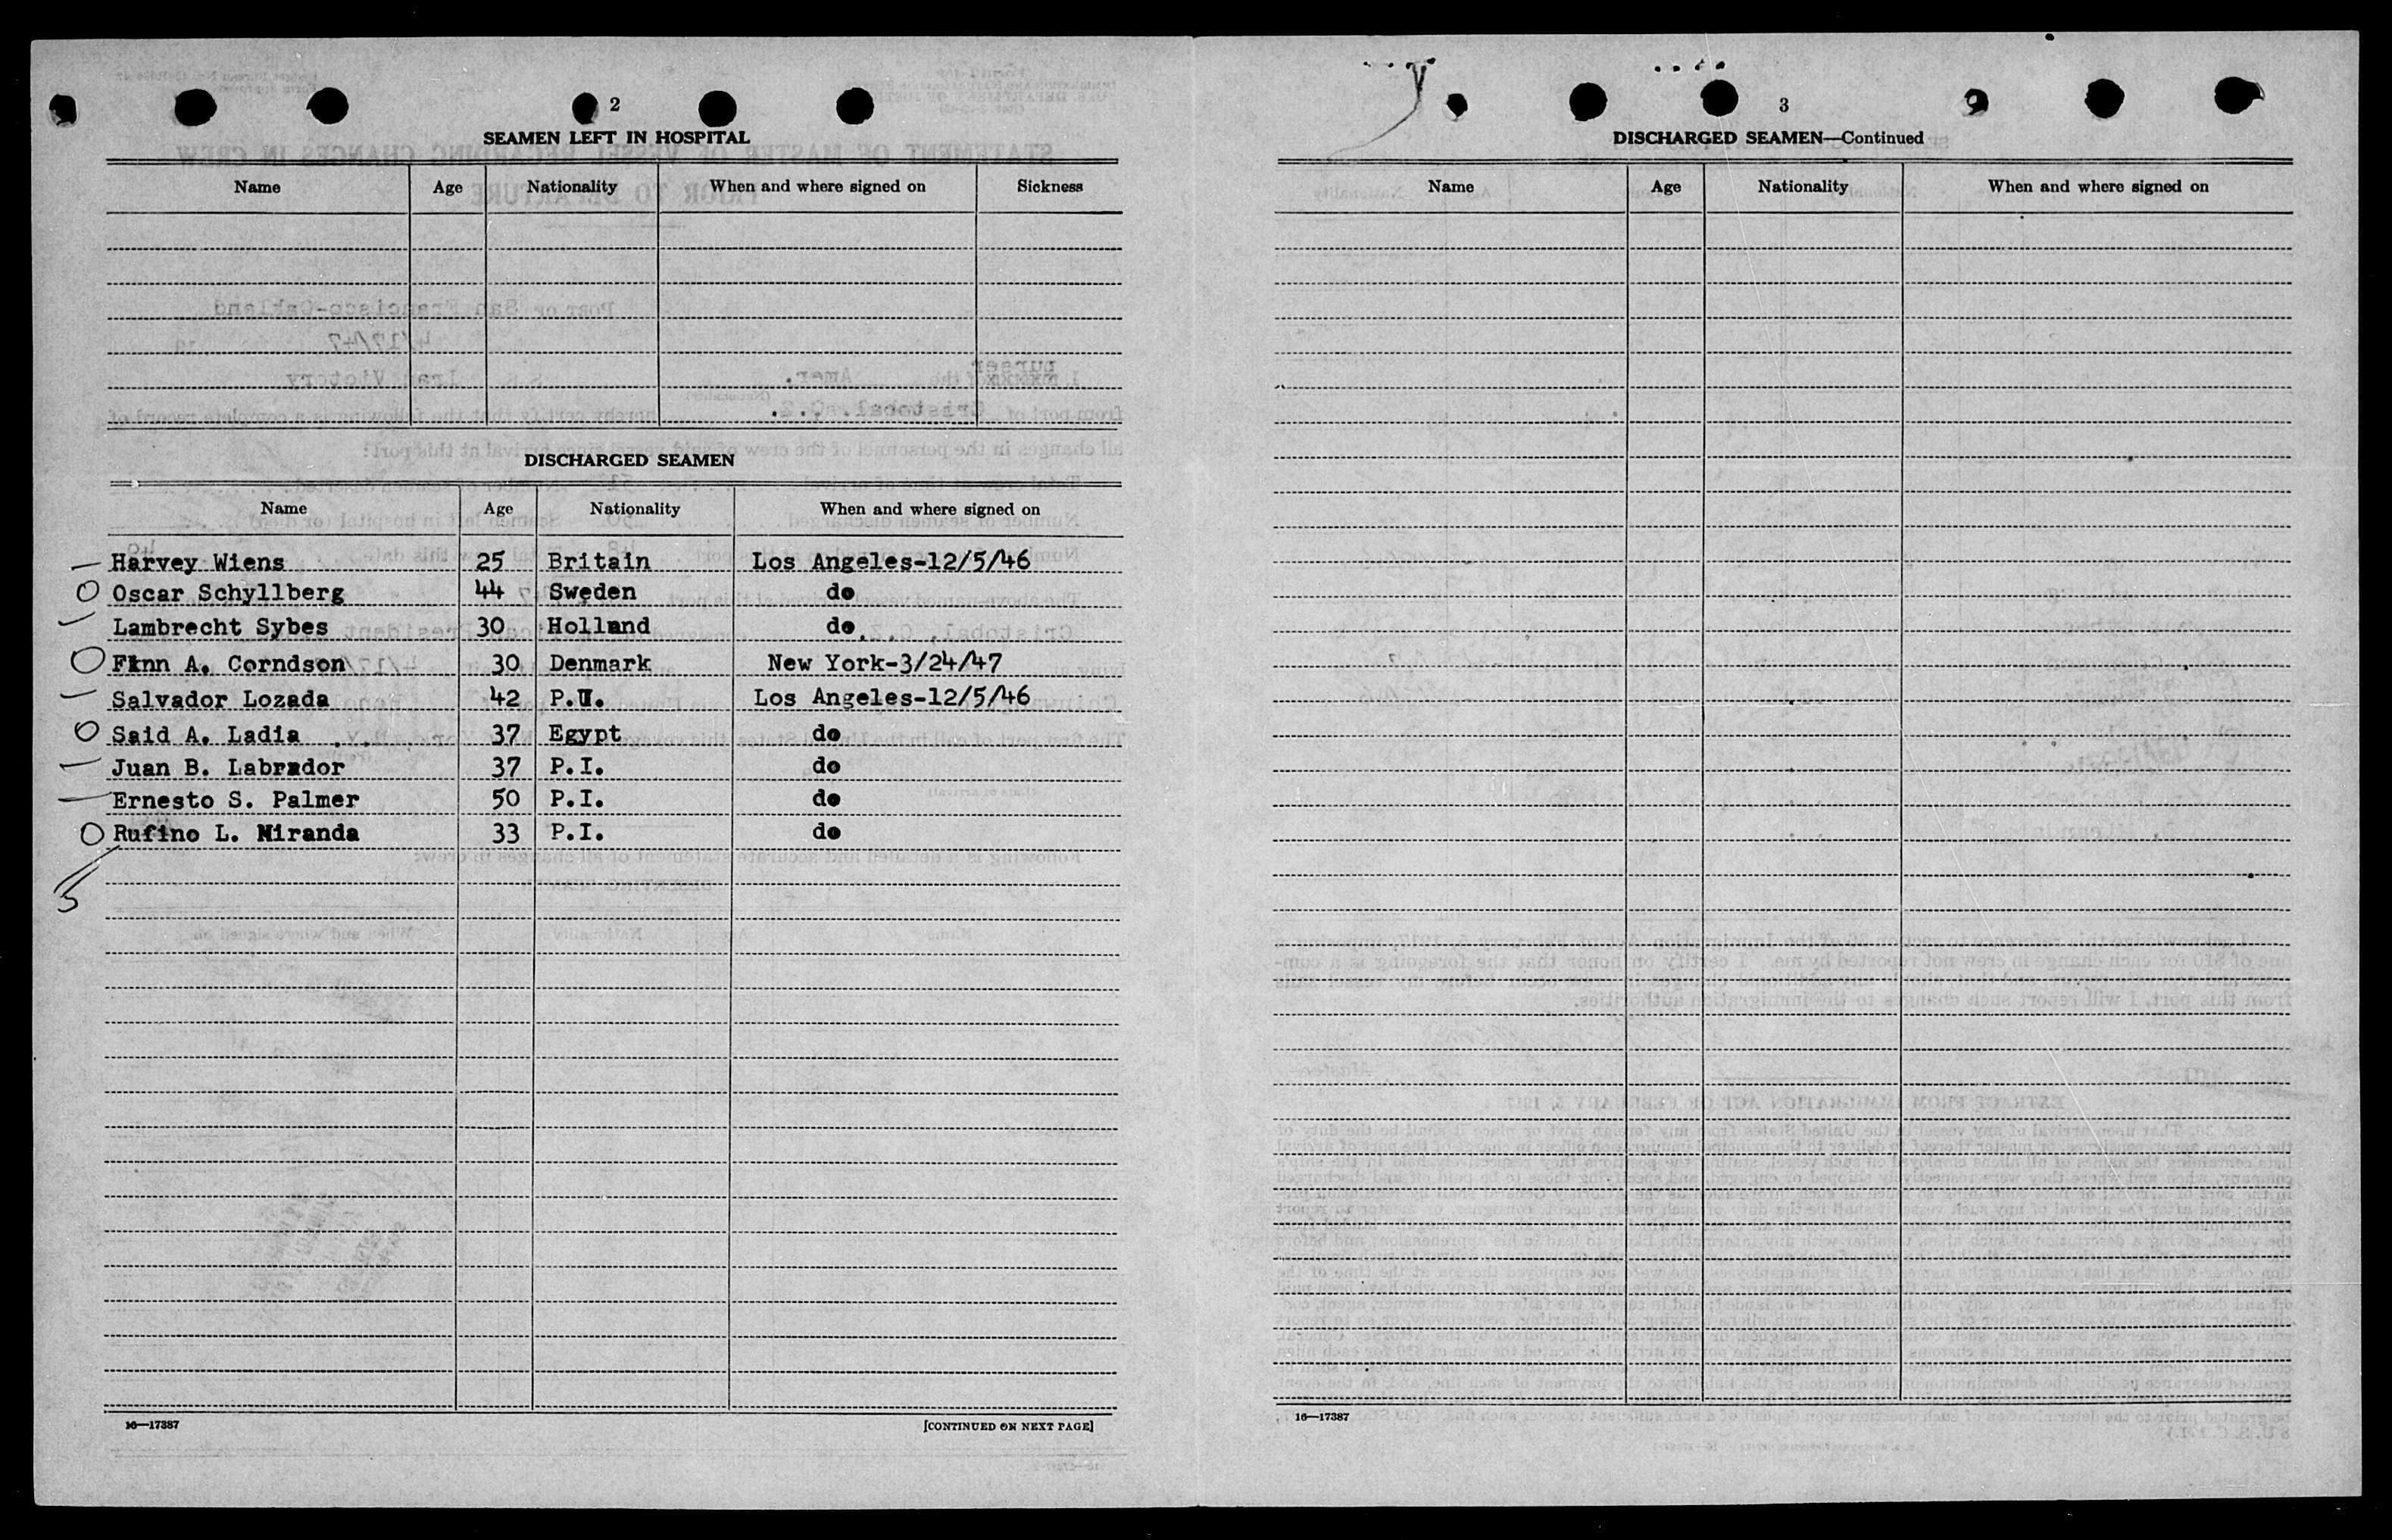 2
SEAMEN LEFT IN HOSPITAL
Name Age Nationality When and where signed on Sickness
DISCHARGED SEAMEN
Name Age Nationality When and where signed on
Harvey Wiens 25 Britain Los Angeles-12/5/46
Oscar Schyllberg 44 Sweden do
Lambrecht Sybes 30 Holland do
Finn A. Corndson 30 Denmark New York-3/24/47
Salvador Lozada 42 P.I. Los Angeles-12/5/46
Said A. Ladia 37 Egypt do
Juan B. Labrador 37 P.I. do
Ernesto S. Palmer 50 P.I. do
Rufino L. Miranda 33 P.I. do
16—17387 [CONTINUED ON NEXT PAGE]
3
DISCHARGED SEAMEN—Continued
Name Age Nationality When and where signed on
16—17387